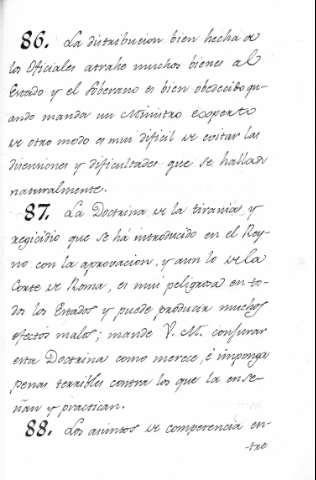 86. La distribucion bien hecha de
los Oficiales atrahe muchos bienes al
Estado y el Soberano es bien obedecido qu-
ando manda un Ministro experto
de otro modo es mui dificil de evitar las
disensiones y dificultades que se hallan
naturalmente.
87. La Doctrina de la tirania, y
regicidio que se há introducido en el Rey-
no con la aprovacion, y aun lo de la
Corte de Roma, es mui peligrosa en to-
dos los Estados y puede producir muchos
efectos malos; mande V. M. censurar
esta Doctrina como merece, è imponga
penas terribles contra los que la ense-
ñan y practican.
88. Los asuntos de competencia en-
-tre